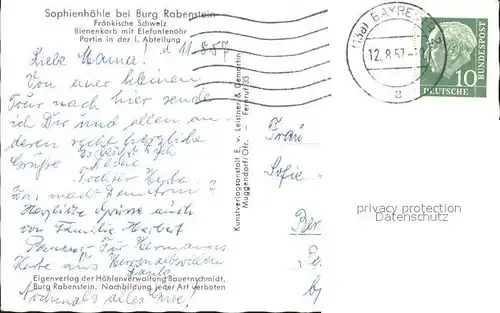 Sophienhöhle bei Burg Rabenstein
Fränkische Schweiz
Bienenkorb mit Elefantenohr
Partie in der I. Abteilung
d. 11.8.57
Liebe Mama!
Von einer kleinen
Tour nach hier sende
ich Dir und allen an-
deren recht herzliche
Grüße
Es küßt Dich
Deine
Tochter Herta.
Was macht ?
Herzliche Grüsse auch
von Familie Herbst
Für Hermanns
Karte aus
Eigenverlag der Höhlenverwaltung Bauernschmidt,
Burg Rabenstein. Nachbildung jeder Art verboten
Nochmals alles Gute!
Kunstverlagsanstalt E. v. Leistner & Demartin
Muggendorf/Ofr. - Fernruf 33
(13a) BAYREUTH
12.8.57
a
10
DEUTSCHE
BUNDESPOST
Frau
Sofie
Ber
privacy protection
Datenschutz